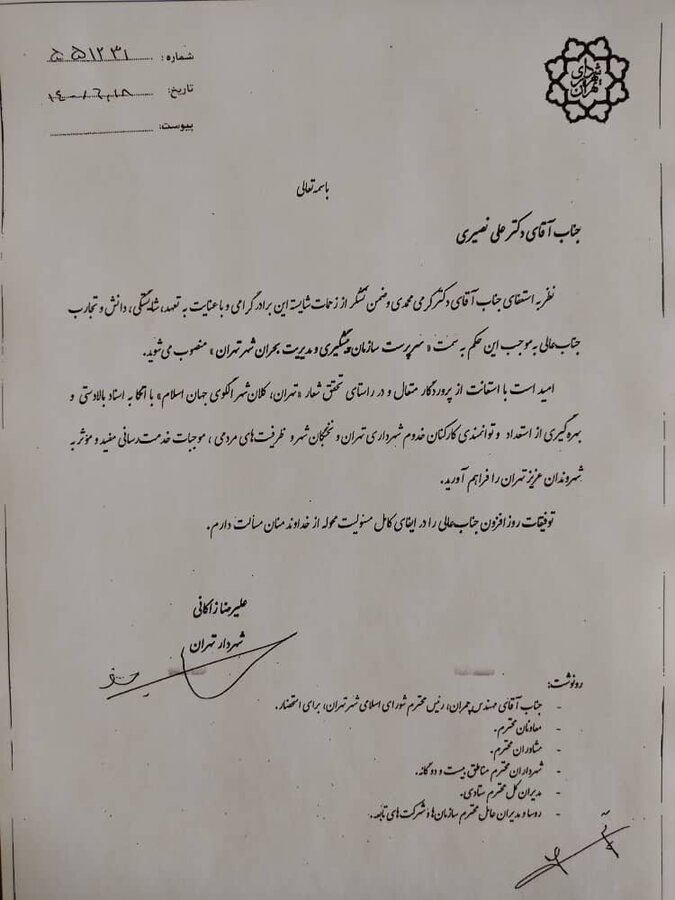 شهرداری تهران
شماره: ۵۵۱۲۳۱
تاریخ: ۱۴۰۰/۶/۱۸
پیوست:
باسمه تعالی
جناب آقای دکتر علی نصیری
نظر به استعفای جناب آقای دکتر کرمی محمدی و ضمن تشکر از زحمات شایسته این برادر گرامی و با عنایت به تعهد، شایستگی، دانش و تجارب
جناب عالی به موجب این حکم به سمت «سرپرست سازمان پیشگیری و مدیریت بحران شهر تهران» منصوب می‌شوید.
امید است با استعانت از پروردگار متعال و در راستای تحقق شعار «تهران، کلان‌شهر الگوی جهان اسلام» با اتکا به اسناد بالادستی و
بهره‌گیری از استعداد و توانمندی کارکنان خدوم شهرداری تهران و نخبگان شهر و ظرفیت‌های مردمی، موجبات خدمت‌رسانی مفید و مؤثر به
شهروندان عزیز تهران را فراهم آورید.
توفیقات روزافزون جناب‌عالی را در ایفای کامل مسئولیت محوله از خداوند منان مسألت دارم.
علیرضا زاکانی
شهردار تهران
رونوشت:
- جناب آقای مهندس چمران، رئیس محترم شورای اسلامی شهر تهران، برای استحضار.
- معاونان محترم.
- مشاوران محترم.
- شهرداران محترم مناطق بیست و دو گانه.
- مدیران کل محترم ستادی.
- روسا و مدیران عامل محترم سازمان‌ها و شرکت‌های تابعه.